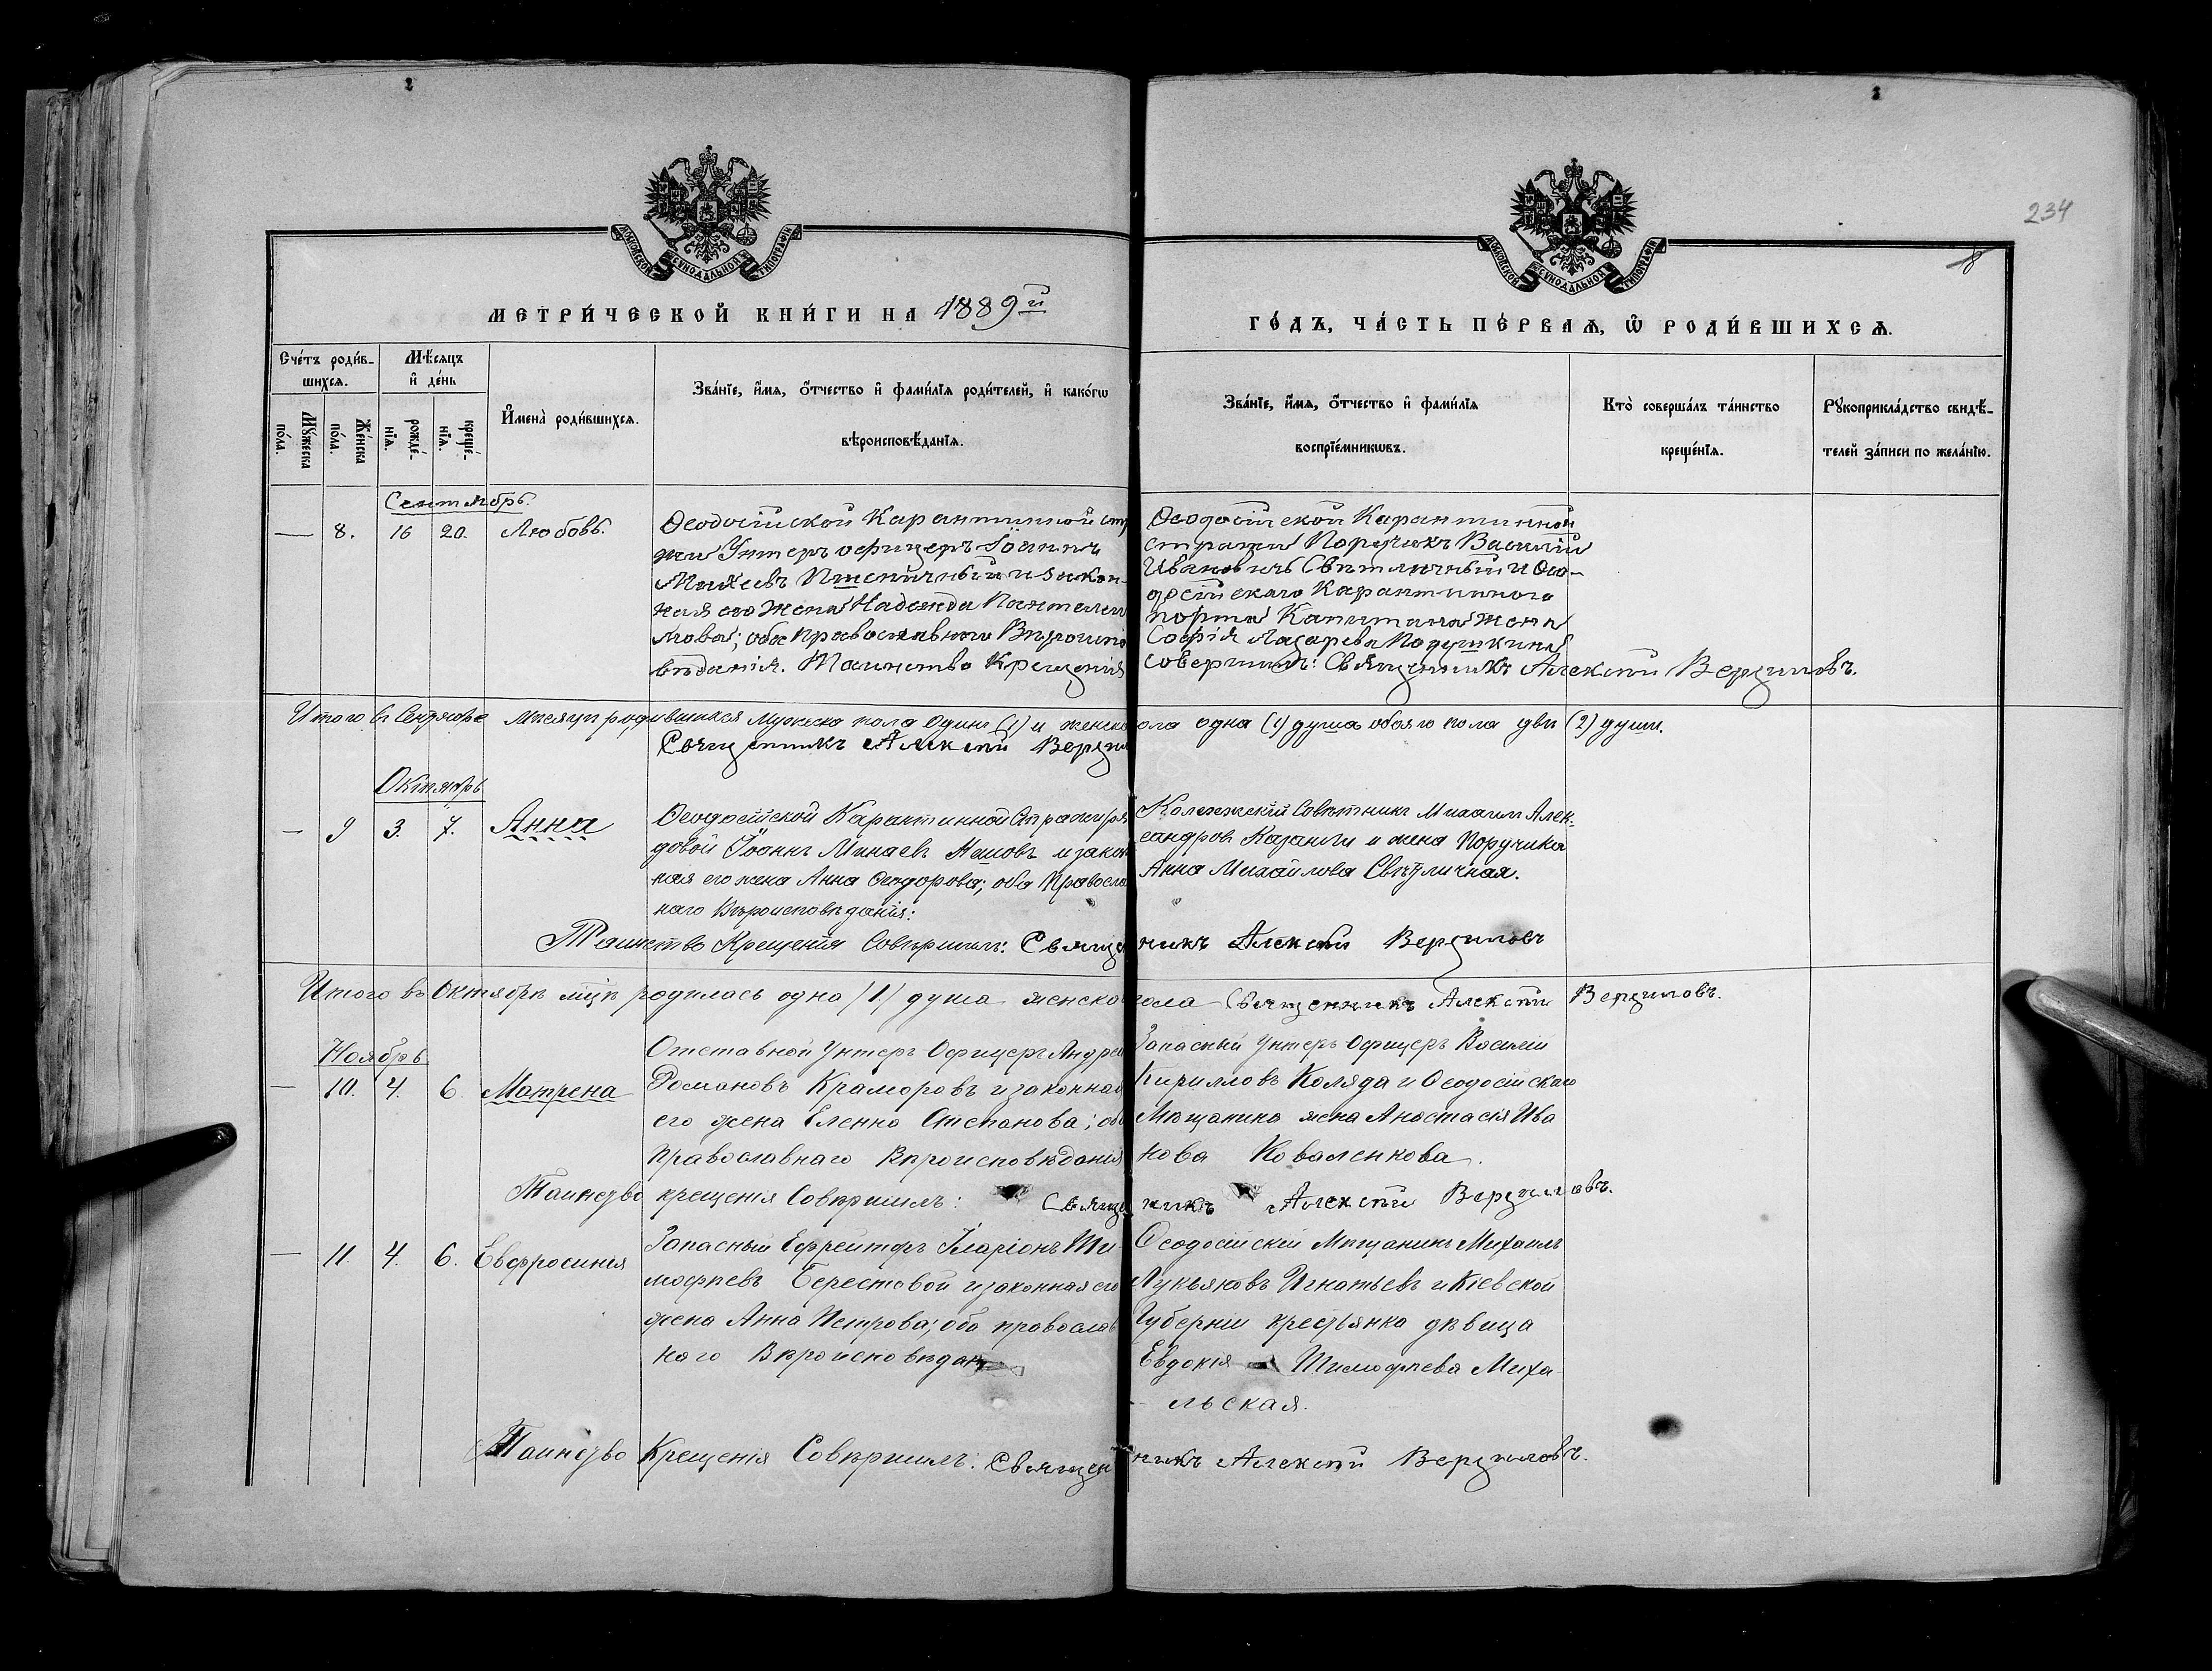 234
8
МОСКОВСКОЙ СѴНОДАЛЬНОЙ ТИПОГРАФІИ
МОСКОВСКОЙ СѴНОДАЛЬНОЙ ТИПОГРАФІИ
МЕТРИ́ЧЕСКОЙ КНИ́ГИ НА 1889й
ГО́ДЪ, ЧА́СТЬ ПЕ́РВАѦ, Ѡ РОДИ́ВШИХСѦ.
Сче́тъ роди́в-
шихсѧ.
Мѣ́сѧцъ
и҆ де́нь
Мꙋ́жеска
по́ла.
Же́нска
по́ла.
рожде́-
нїѧ.
креще́-
нїѧ.
И҆мена̀ роди́вшихсѧ.
Зва́нїе, и҆́мѧ, ѻ҆́тчество и҆ фами́лїѧ роди́телей, и҆ како́гѡ
вѣроисповѣ́данїѧ.
Зва́нїе, и҆́мѧ, ѻ҆́тчество и҆ фами́лїѧ
воспрїе́мникѡвъ.
Кто̀ соверша́лъ та́инство
креще́нїѧ.
Рꙋкоприкла́дство свидѣ́-
телей за́писи по жела́нїю.
Сентябрь.
— 8. 16 20. Любовь.
Ѳеодосійской Карантинной стра
жи Унтеръ офицеръ Іоаннъ
Михеевъ Пшеничный и закон-
ная его жена Надежда Пантелеи
мова; оба православнаго Вѣроиспо
вѣданія. Таинство Крещенія
Ѳеодосійской Карантинной
стражи Поручикъ Василій
Ивановичъ Свѣтличный и Ѳео-
досійскаго Карантиннаго
порта Капитана жена
Софія Лазарева Подушкина
совершилъ: Священникъ Алексѣй Верзиловъ.
Итого въ Сентябре месяце родившихся мужска пола Одинъ (1) и женска пола одна (1) душа обоего пола две (2) души.
Священникъ Алексѣй Верзил
Октябрь
— 9 3. 7. Анна
Ѳеодосійской Карантинной Стражи ря
довой Іоаннъ Минаевъ и закон
ная его жена Анна Ѳеодорова; оба Правосла
наго Вѣроисповѣданія:
Колежскій Совѣтникъ Михаилъ Алек-
сандровъ и жена Поручика
Анна Михайлова Свѣтличная.
Таинство Крещенія Совѣршилъ: Священникъ Алексѣй Верзиловъ
Итого въ Октябрѣ мцѣ родилась одна /1/ душа женска пола Священникъ Алексѣй Верзиловъ.
Ноябрь
— 10. 4. 6. Матрена
Отставной Унтеръ Офицеръ Андрей
Романовъ Краморовъ и законная
его жена Елена Степанова; оба
Православнаго Вѣроисповѣданія
Запасный Унтеръ Офицеръ Василій
Кирилловъ Коляда и Ѳеодосійскаго
Мѣщанина жена Анастасія Ива
нова Коваленкова.
Таинство крещенія Совѣршилъ: Священникъ Алексѣй Верзиловъ.
— 11. 4. 6. Евфросинія
Запасный Ефрейторъ Иларіонъ Ти-
мофѣевъ Берестовой и законная его
жена Анна Петрова; оба православ
наго Вѣроисповѣдан
Ѳеодосійскій Мѣщанинъ Михаилъ
Лукьяновъ Игнатьевъ и Кіевской
Губерніи крестьянка дѣвица
Евдокія Тимофѣева Миха-
льская.
Таинство Крещенія Совѣршилъ: Священникъ Алексѣй Верзиловъ.